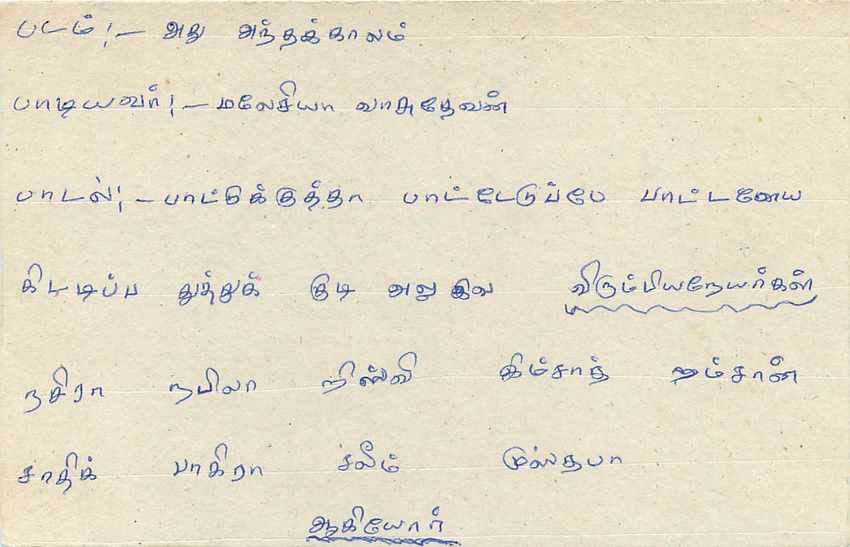 படம்:- அது அந்தக்காலம்
பாடியவர்:- மலேசியா வாசுதேவன்
பாடல்:- பாட்டுக்குத்தா பாட்டேடுப்பே பாட்டனைய
கிட்டிப்ப துத்துக் குடி அலு இல விரும்பியநேயர்கள்
நசிரா நபிலா றிஸ்வி கிம்சாத் றம்சான்
சாதிக் பாகிரா சலீம் முஸ்தபா
ஆகியோர்